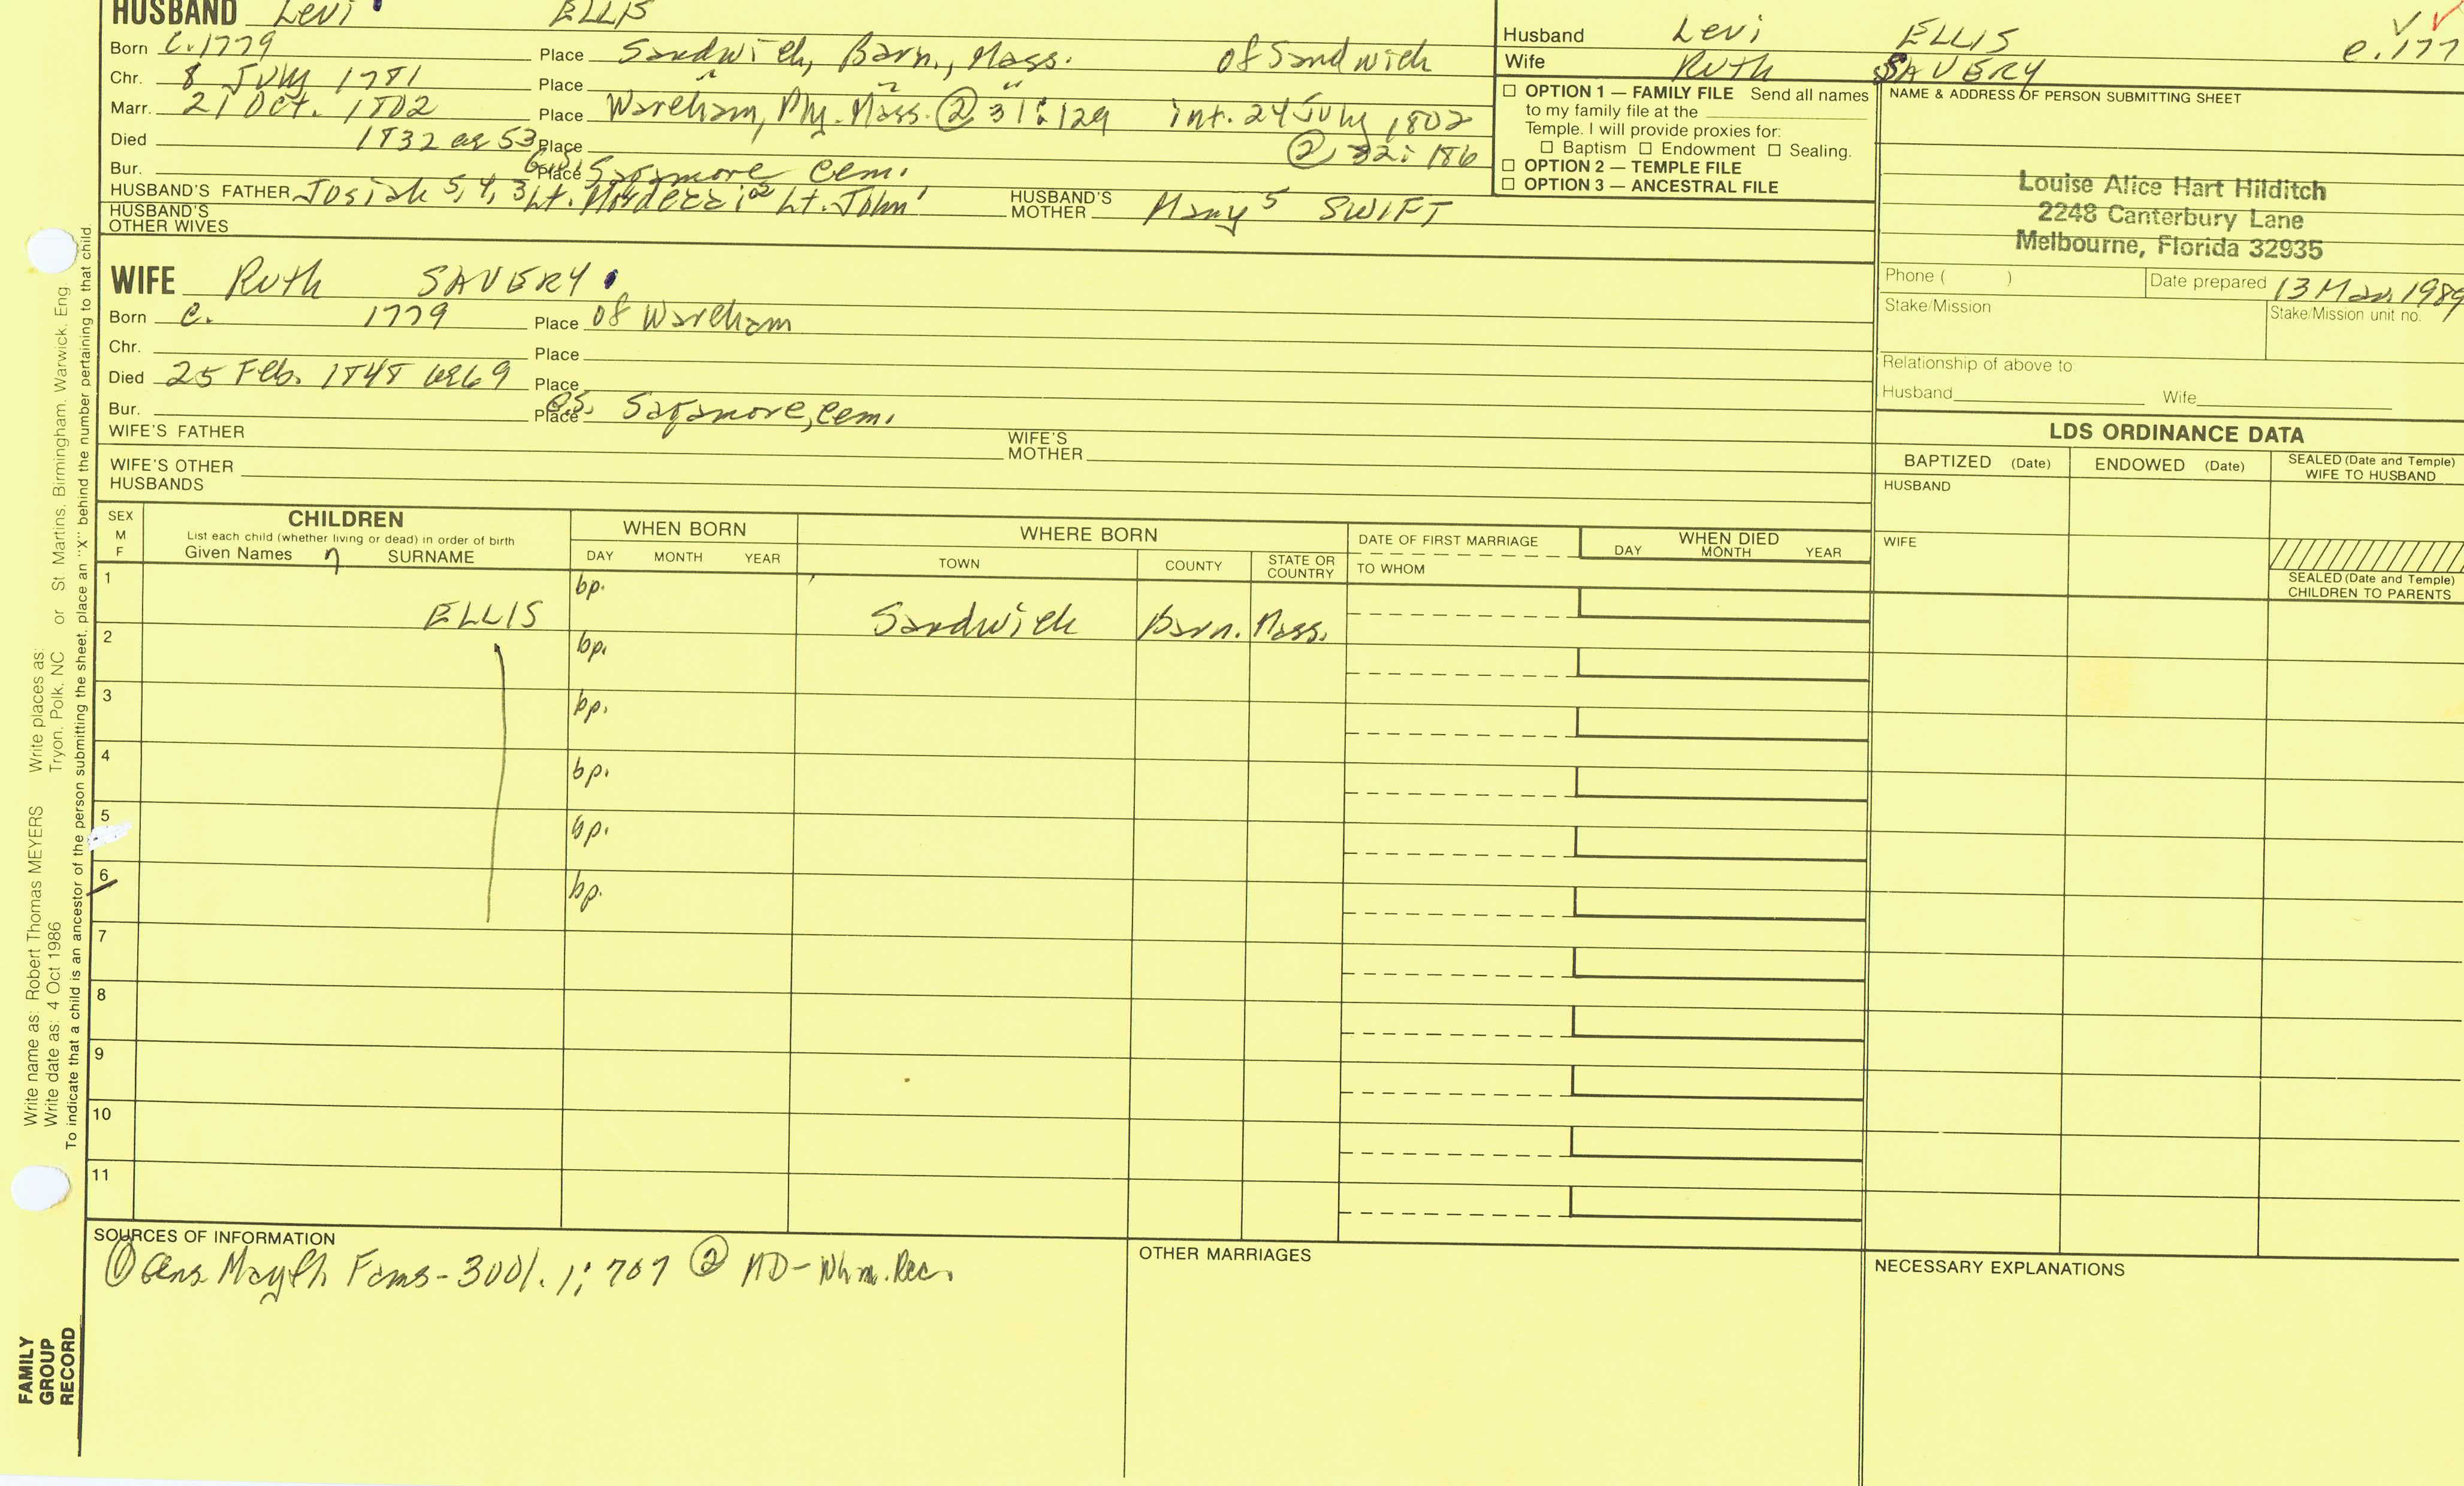 HUSBAND Levi ELLIS
Born c.1779 Place Sandwich, Barn., Mass. of Sandwich
Chr. 8 July 1781 Place " " "
Marr. 21 Oct. 1802 Place Wareham, Ply. Mass. ② 31:129 int. 24 July 1802
② 32:186
Died 1832 ae 53 Place
Bur. Place G.S. Sagamore Cem.
HUSBAND'S FATHER Josiah 5, 4, 3 Lt. Mordecai 2 Lt. John 1 HUSBAND'S MOTHER Mary 5 SWIFT
HUSBAND'S OTHER WIVES
WIFE Ruth SAVERY
Born c. 1779 Place of Wareham
Chr. Place
Died 25 Feb. 1848 ae 69 Place
Bur. Place G.S. Sagamore, Cem.
WIFE'S FATHER WIFE'S MOTHER
WIFE'S OTHER HUSBANDS
Husband Levi ELLIS c.177
Wife Ruth SAVERY
☐ OPTION 1 — FAMILY FILE Send all names
to my family file at the
Temple. I will provide proxies for:
☐ Baptism ☐ Endowment ☐ Sealing.
☐ OPTION 2 — TEMPLE FILE
☐ OPTION 3 — ANCESTRAL FILE
NAME & ADDRESS OF PERSON SUBMITTING SHEET
Louise Alice Hart Hilditch
2248 Canterbury Lane
Melbourne, Florida 32935
Phone ( ) Date prepared 13 Mar 1989
Stake/Mission Stake/Mission unit no.
Relationship of above to:
Husband Wife
LDS ORDINANCE DATA
BAPTIZED (Date) ENDOWED (Date) SEALED (Date and Temple) WIFE TO HUSBAND
HUSBAND
WIFE
SEALED (Date and Temple) CHILDREN TO PARENTS
SEX M F
CHILDREN
List each child (whether living or dead) in order of birth
Given Names SURNAME
WHEN BORN
DAY MONTH YEAR
WHERE BORN
TOWN COUNTY STATE OR COUNTRY
DATE OF FIRST MARRIAGE
TO WHOM
WHEN DIED
DAY MONTH YEAR
1 ELLIS bp. Sandwich Barn. Mass.
2 bp.
3 bp.
4 bp.
5 bp.
6 bp.
7
8
9
10
11
SOURCES OF INFORMATION
① Gens. Mayfl. Fams- 300/. 1:707 ② MD- Whm. Rec.
OTHER MARRIAGES
NECESSARY EXPLANATIONS
Write name as: Robert Thomas MEYERS Write places as:
Write date as: 4 Oct 1986 Tryon, Polk, NC or St Martins, Birmingham, Warwick, Eng
To indicate that a child is an ancestor of the person submitting the sheet, place an "X" behind the number pertaining to that child.
FAMILY
GROUP
RECORD